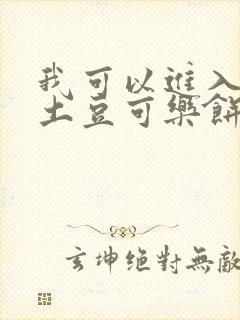 我可以進入
土豆可樂餅
玄坤絕對無敵